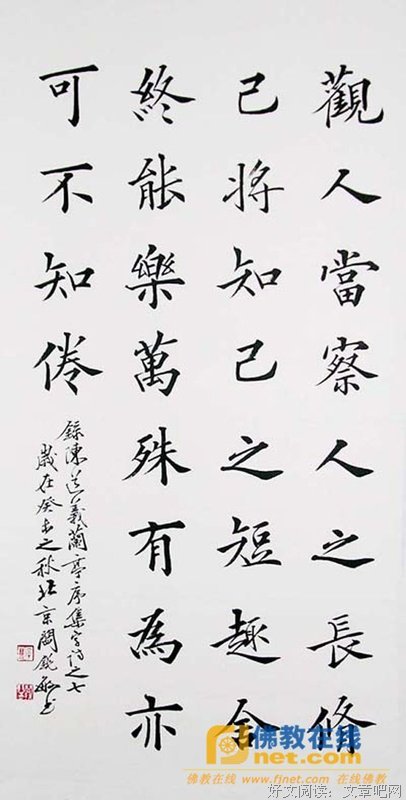 觀人當察人之長修
己將知己之短趣合
終能樂萬殊有為亦
可不知倦
錄陳道義蘭亭序集字詩之七
歲在癸未之秋北京書
佛教在线
fjnet.com
佛教在线 www.fjnet.com 佛教在线
好文阅读：文章吧网